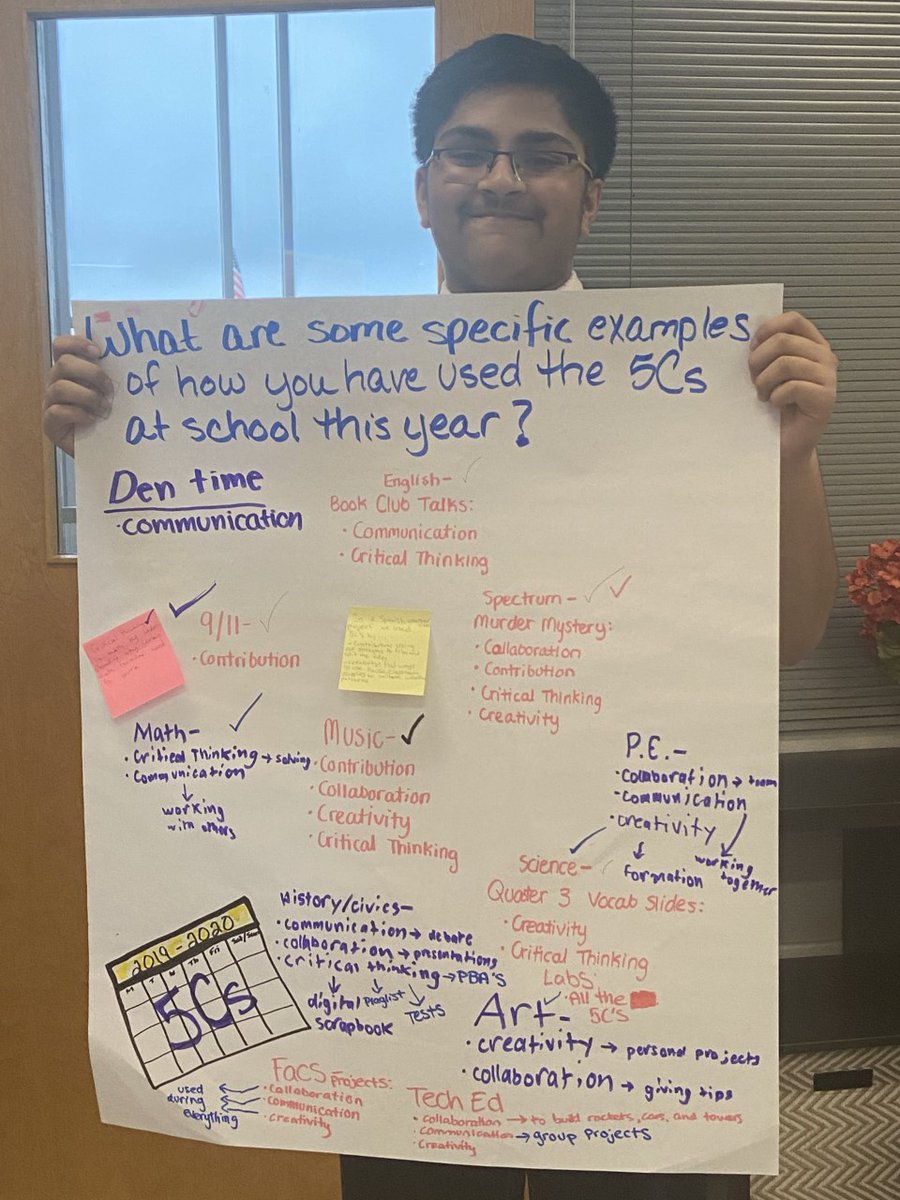 What are some specific examples
of how you have used the 5Cs
at school this year?
Den time
·communication
English-
Book Club Talks:
· Communication
· Critical Thinking
9/11-
· Contribution
Spectrum-
Murder Mystery:
· Collaboration
· Contribution
· Critical Thinking
· Creativity
Math-
· Critical Thinking → solving
· Communication
↓
working
with others
Music-
· Contribution
· Collaboration
· Creativity
· Critical Thinking
P.E.-
· collaboration → team
· communication
· creativity
↓
formation
working
together
Science-
Quater 3 Vocab Slides:
· Creativity
· Critical Thinking
Labs:
· All the
5C's
History/civics-
· communication → debate
· collaboration → presentations
· critical thinking → PBA's
digital
scrapbook
Tests
2019-2020
M T W Th Fri Sat/Sun
5Cs
Art-
· creativity → personal projects
· collaboration → giving tips
FaCS Projects:
· collaboration
· communication
· creativity
used
during
everything
Tech Ed
· collaboration → to build rockets, cars, and towers
· communication → group projects
· creativity